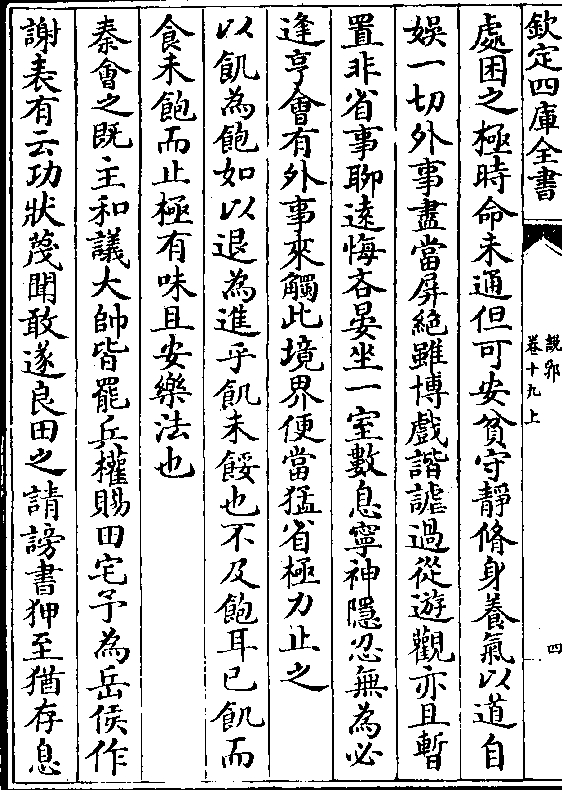 欽定四庫全書
說郛
卷十九上
四
處困之極時命未通但可安貧守靜脩身養氣以道自
娱一切外事盡當屏絶雖博戲諧謔過從遊觀亦且暫
置非省事聊逺悔吝晏坐一室數息寧神隱忍無為必
逢亨會有外事來觸此境界便當猛省極力止之
以飢為飽如以退為進乎飢未餒也不及飽耳已飢而
食未飽而止極有味且安樂法也
秦會之既主和議大帥皆罷兵權賜田宅予為岳侯作
謝表有云功狀蔑聞敢遂良田之請謗書狎至猶存息